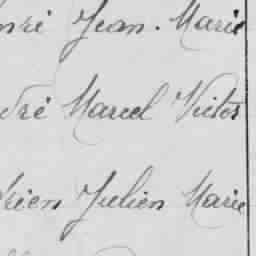 nré Jean. Marie
dré Marcel Victor
drien Julien Marie